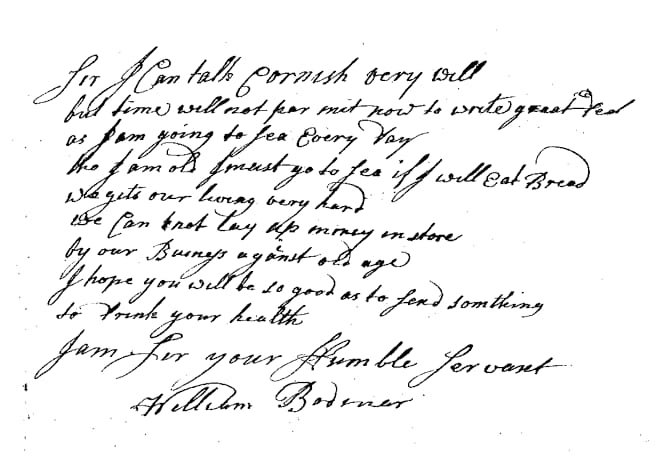 Sir I Can talk Cornish very will
but time will not par mit now to write great Deal
as I am going to Sea Every Day
tho I am old I must go to Sea if I will Eat Bread
we gets our living very hard
we Can knot Lay up money in store
by our Buiness against old age
I hope you will be so good as to send somthing
to Drink your health
I am Sir your Humble Servant
William Bodener